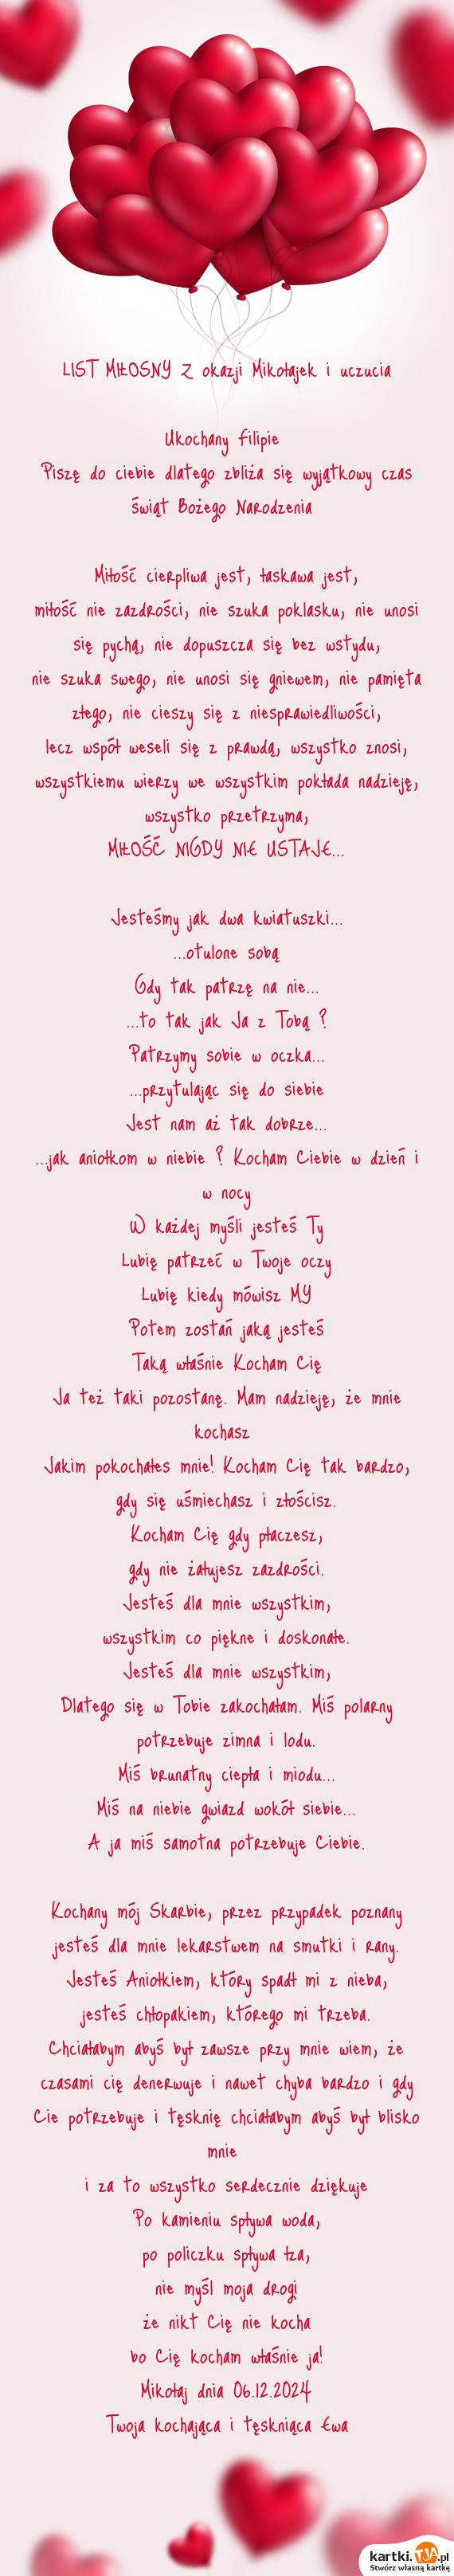 LIST MIŁOSNY Z okazji Mikołajek i uczucia
Ukochany Filipie
Piszę do ciebie dlatego zbliża się wyjątkowy czas
świąt Bożego Narodzenia
Miłość cierpliwa jest, łaskawa jest,
miłość nie zazdrości, nie szuka poklasku, nie unosi
się pychą, nie dopuszcza się bez wstydu,
nie szuka swego, nie unosi się gniewem, nie pamięta
złego, nie cieszy się z niesprawiedliwości,
lecz współ weseli się z prawdą, wszystko znosi,
wszystkiemu wierzy we wszystkim pokłada nadzieję,
wszystko przetrzyma,
MIŁOŚĆ NIGDY NIE USTAJE...
Jesteśmy jak dwa kwiatuszki...
...otulone sobą
Gdy tak patrzę na nie...
...to tak jak Ja z Tobą ?
Patrzymy sobie w oczka...
...przytulając się do siebie
Jest nam aż tak dobrze...
...jak aniołkom w niebie ? Kocham Ciebie w dzień i
w nocy
W każdej myśli jesteś Ty
Lubię patrzeć w Twoje oczy
Lubię kiedy mówisz MY
Potem zostań jaką jesteś
Taką właśnie Kocham Cię
Ja też taki pozostanę. Mam nadzieję, że mnie
kochasz
Jakim pokochałes mnie! Kocham Cię tak bardzo,
gdy się uśmiechasz i złościsz.
Kocham Cię gdy płaczesz,
gdy nie żałujesz zazdrości.
Jesteś dla mnie wszystkim,
wszystkim co piękne i doskonałe.
Jesteś dla mnie wszystkim,
Dlatego się w Tobie zakochałam. Miś polarny
potrzebuje zimna i lodu.
Miś brunatny ciepła i miodu...
Miś na niebie gwiazd wokół siebie...
A ja miś samotna potrzebuje Ciebie.
Kochany mój Skarbie, przez przypadek poznany
jesteś dla mnie lekarstwem na smutki i rany.
Jesteś Aniołkiem, który spadł mi z nieba,
jesteś chłopakiem, którego mi trzeba.
Chciałabym abyś był zawsze przy mnie wiem, że
czasami cię denerwuje i nawet chyba bardzo i gdy
Cie potrzebuje i tęsknię chciałabym abyś był blisko
mnie
i za to wszystko serdecznie dziękuje
Po kamieniu spływa woda,
po policzku spływa łza,
nie myśl moja drogi
że nikt Cię nie kocha
bo Cię kocham właśnie ja!
Mikołaj dnia 06.12.2024
Twoja kochająca i tęskniąca Ewa
kartki.TJA.pl
Stwórz własną kartkę